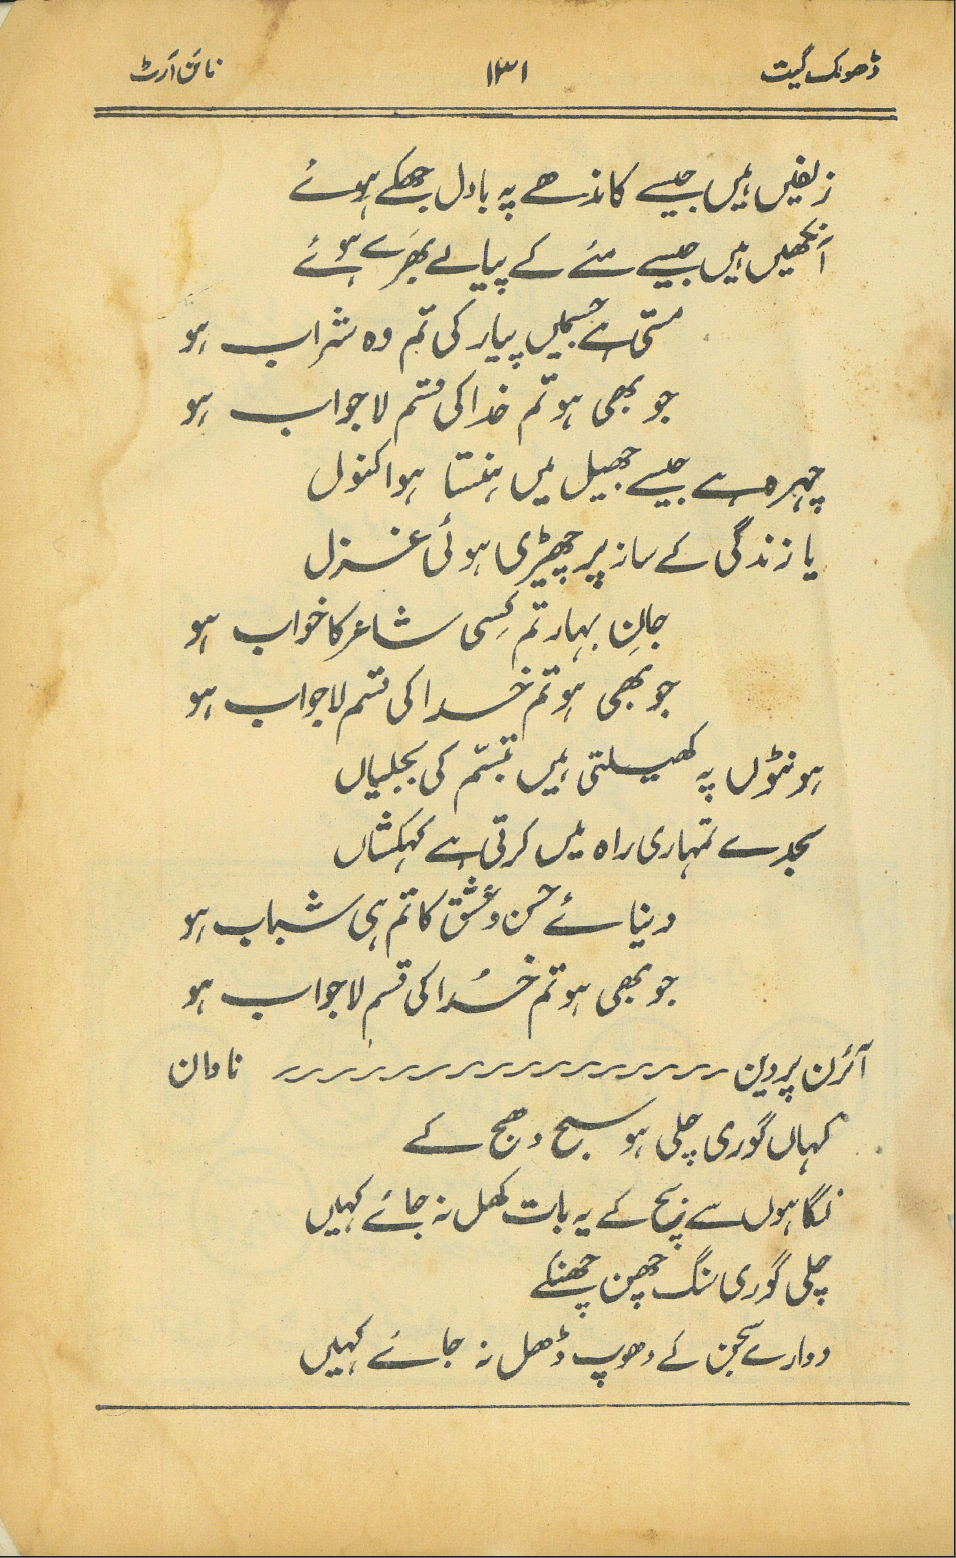 ڈھولک گیت ۱۳۱ فائن آرٹ
زلفیں ہیں جیسے کاندھے پہ بادل جھکے ہوئے
آنکھیں ہیں جیسے مئے کے پیالے بھرے ہوئے
مستی ہے جسمیں پیار کی تم وہ شراب ہو
جو بھی ہو تم خدا کی قسم لاجواب ہو
چہرہ ہے جیسے جھیل میں ہنستا ہوا کنول
یا زندگی کے ساز پر چھیڑی ہوئی غزل
جانِ بہار تم کِسی شاعر کا خواب ہو
جو بھی ہو تم خدا کی قسم لاجواب ہو
ہونٹوں پہ کھیلتی ہیں تبسّم کی بجلیاں
سجدے تمہاری راہ میں کرتی ہے کہکشاں
دنیائے حسن و عشق کا تم ہی شباب ہو
جو بھی ہو تم خُدا کی قسم لاجواب ہو
آئرن پروین نادان
کہاں گوری چلی ہو سج دھج کے
نگاہوں سے بچ کے یہ بات کھل نہ جائے کہیں
چلی گوری سنگ چھن چھنکے
دوارے سجن کے دھوپ ڈھل نہ جائے کہیں